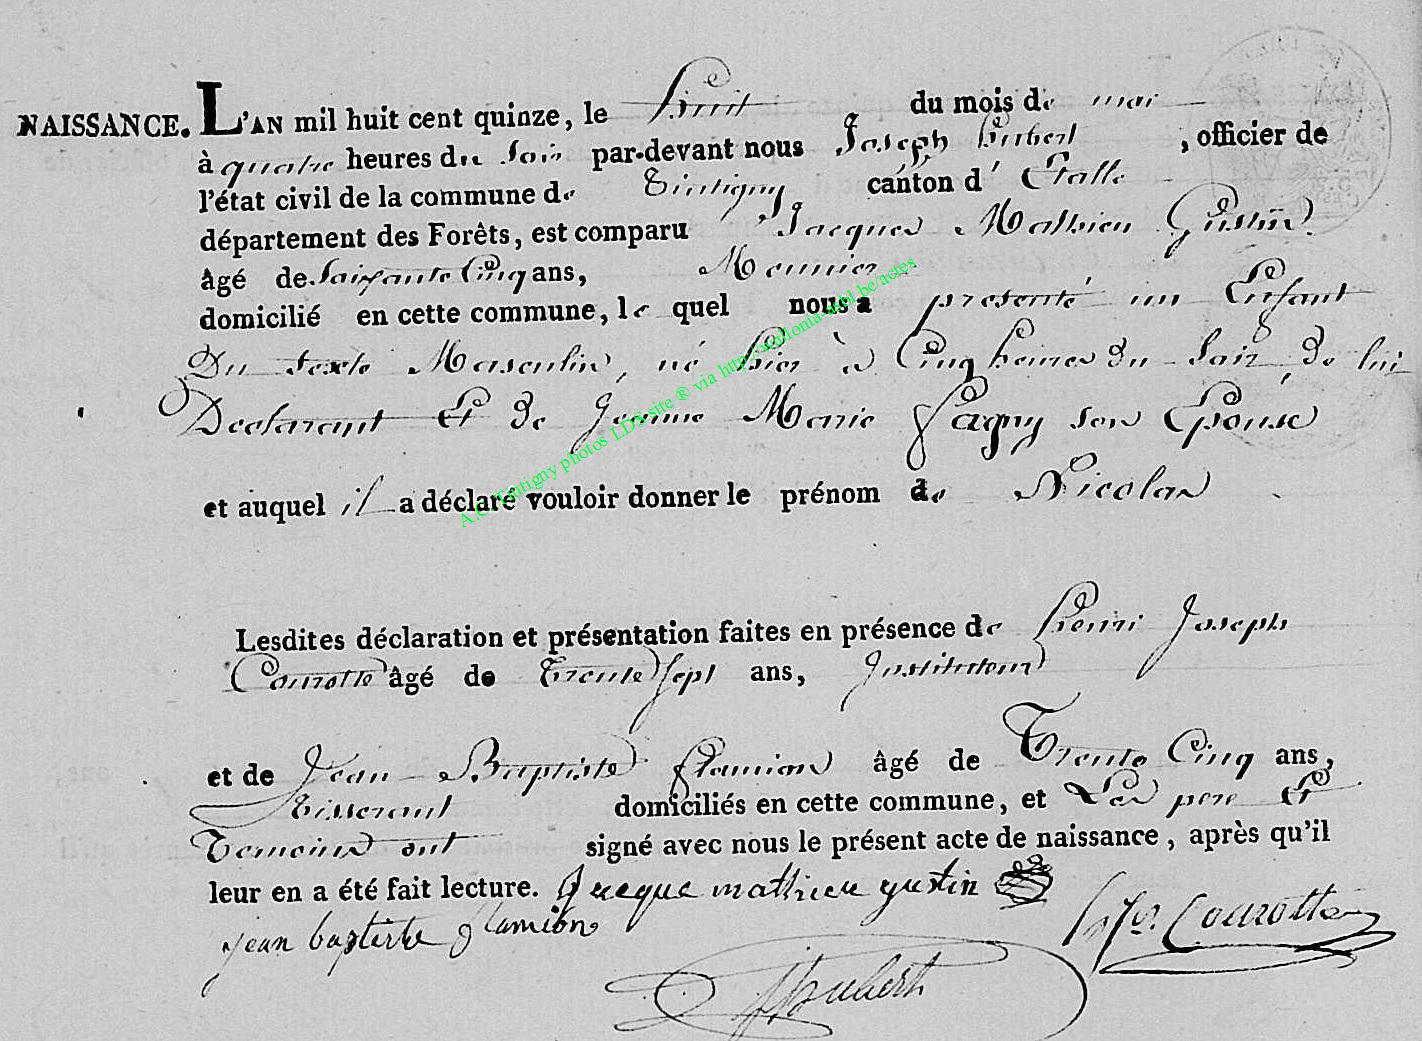 NAISSANCE. L'AN mil huit cent quinze, le huit du mois de mai
à quatre heures du Soir par-devant nous Joseph hubert, officier de
l'état civil de la commune de Tintigny canton d'Etalle
département des Forêts, est comparu Jacques Mathieu Gustin
âgé de Soixante Cinq ans, Meunier
domicilié en cette commune, le quel nous a présenté un Enfant
Du Sexte Masculin, né hier à Cinq heures du Soir, de lui
Declarant Et de Jeanne Marie fagny son Epouse
et auquel il a déclaré vouloir donner le prénom de Nicolas
Lesdites déclaration et présentation faites en présence de henri Joseph
Courotte âgé de Trente Sept ans, Instituteur
et de Jean Baptiste flamion âgé de Trente Cinq ans,
Tisserant domiciliés en cette commune, et Les pere Et
Temoins ont signé avec nous le présent acte de naissance, après qu'il
leur en a été fait lecture. Jacque mathieu gustin
jean baptiste flamion Courotte
Hubert
A.C. Tintigny photos LDS site ® via http://wallonia-asbl.be/actes